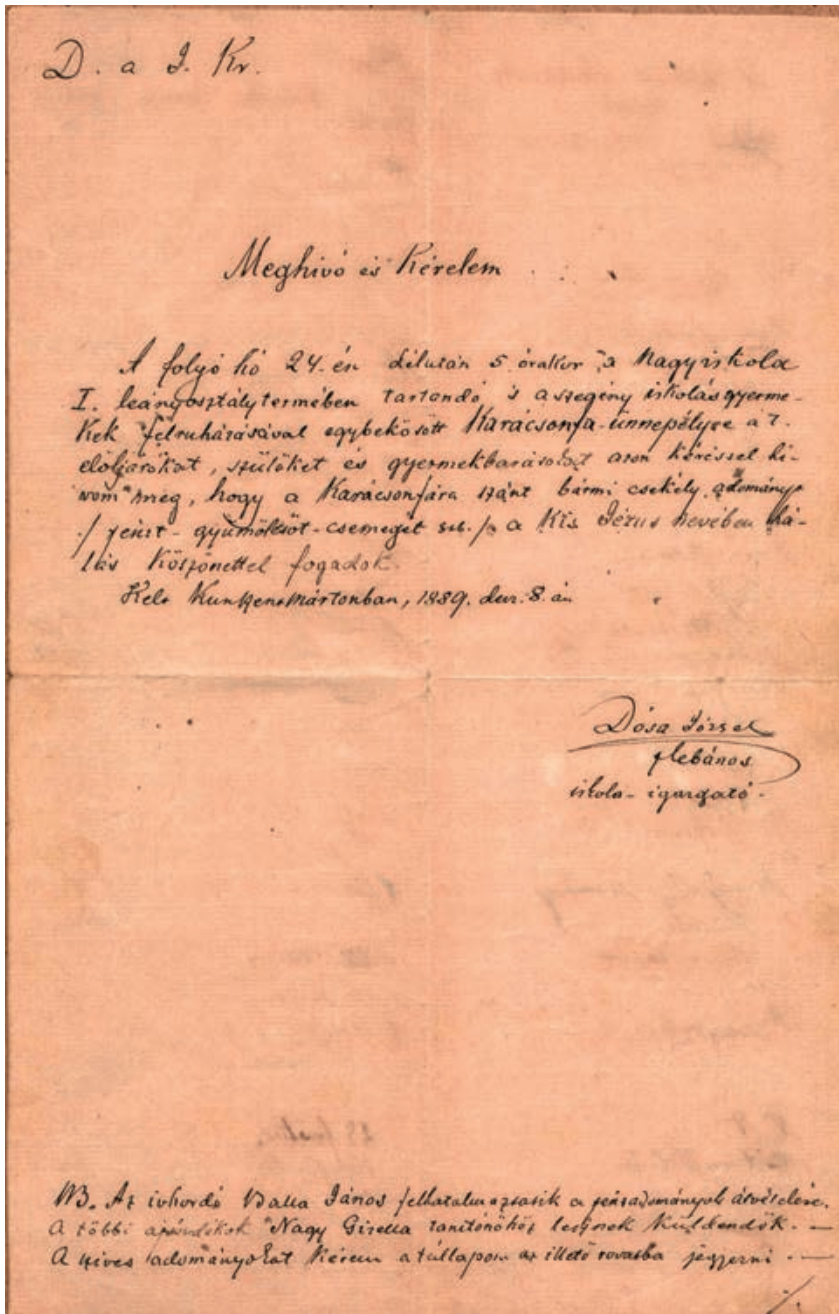 D. a J. Kr.
Meghivó és Kérelem
A folyó hó 24.-én délután 5 órakor, a Nagyiskola
I. leányosztálytermében tartandó, s a szegény iskolásgyerme-
kek felruházásával egybekötött Karácsonfa-ünnepélyre a T.
elöljárókat, szülőket és gyermekbarátokat azon kéréssel hi-
vom meg, hogy a Karácsonfára szánt bármi csekély adományt
/pénzt- gyümölcsöt- csemegét stb./ a Kis Jézus nevében há-
lás köszönettel fogadok.
Kelt Kunszentmártonban, 1889. dec. 8.án
Dósa József
plebános
iskola-igazgató-
NB. Az ivhordó Balla János felhatalmaztatik a pénzadományok átvételére.
A többi ajándékok Nagy Gizella tanitónőhöz lesznek küldendők. —
A szives adományokat kérem a túllapon az illető rovatba jegyezni. —